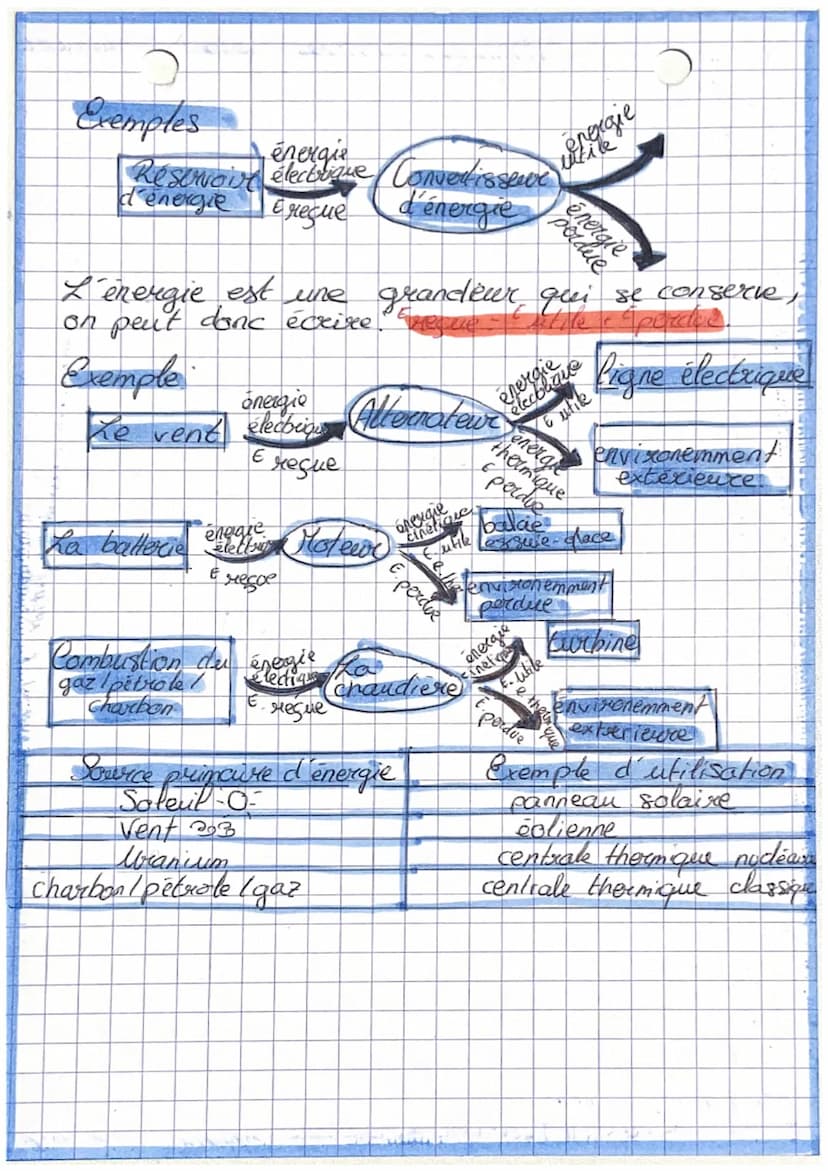 Exemples
Réservoir
d'énergie
énergie
électrique
E reçue
Convertisseur
d'énergie
énergie
utile
énergie
perdue
L'énergie est une grandeur qui se conserve,
on peut donc écrire. E reçue = E utile + E perdue.
Exemple
Le vent
énergie
électrique
E reçue
Alternateur
énergie
électrique
E utile
énergie
thermique
E perdue
ligne électrique
environemment
extérieure.
La batterie
énergie
E reçoe
Moteur
énergie
cinétique
E utile
E perdue
balaie
essuie-glace
environemment
perdue
Combustion du
gaz/pétrole/
charbon
énergie
électrique
E. reçue
La
chaudière
énergie
E. utile
E perdue
turbine
environemment
extérieure
Source primaire d'énergie
Exemple d'utilisation
Soleil
panneau solaire
Vent
éolienne
Uranium
centrale thermique nucléaire
charbon/pétrole/gaz
centrale thermique classique